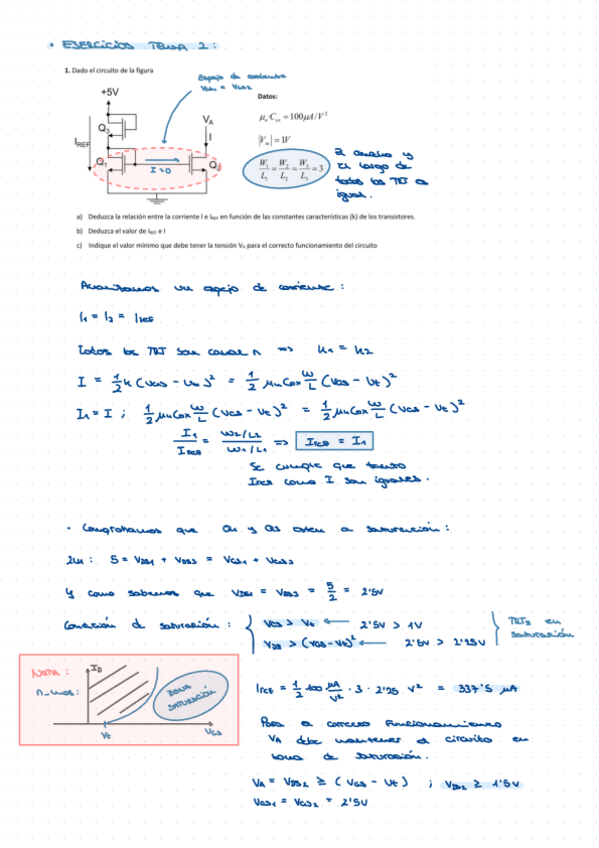 • EJERCICIOS TEMA 2:
1. Dado el circuito de la figura
Espejo de corriente
VGS1 = VGS2
Datos:
+5V
VA
Q3
IREF
I
Q1
I=0
Q
μn·Cox = 100μA/V²
|Vtn| = 1V
W1/L1 = W2/L2 = W3/L3 = 3
El ancho y
el largo de
todos los TRT es
igual.
a) Deduzca la relación entre la corriente I e IREF en función de las constantes características (k) de los transistores.
b) Deduzca el valor de IREF e I
c) Indique el valor mínimo que debe tener la tensión VA para el correcto funcionamiento del circuito
Analizamos un espejo de corriente:
I1 = I2 = IREF
Todos los TRT son canal n => K1 = K2
I = 1/2 K (VGS - Vtn)² = 1/2 μnCox W/L (VGS - Vt)²
I1 = I ; 1/2 μnCox W/L (VGS - Vt)² = 1/2 μnCox W/L (VGS - Vt)²
I1/IREF = W2/L2 / W1/L1 => IREF = I1
Se cumple que tanto
IREF como I son iguales.
• Comprobamos que Q1 y Q3 estén a saturación:
5 = VDS1 + VDS3 = VGS1 + VGS3
Y como sabemos que VDS1 = VDS3 = 5/2 = 2'5V
Condición de saturación:
VGS > Vt ← 2'5V > 1V
VDS > (VGS - Vt)² ← 2'5V > 2'25V
TRTs en
saturación
NOTA:
n_mos:
ID
ZONA
SATURACIÓN
Vt
VGS
IREF = 1/2 100 μA/V² · 3 · 2'25 V² = 337'5 μA
Para el correcto funcionamiento
VA debe mantener el circuito en
zona de saturación.
VA = VDS2 ≥ (VGS - Vt) ; VDS2 ≥ 1'5V
VGS1 = VGS2 = 2'5V